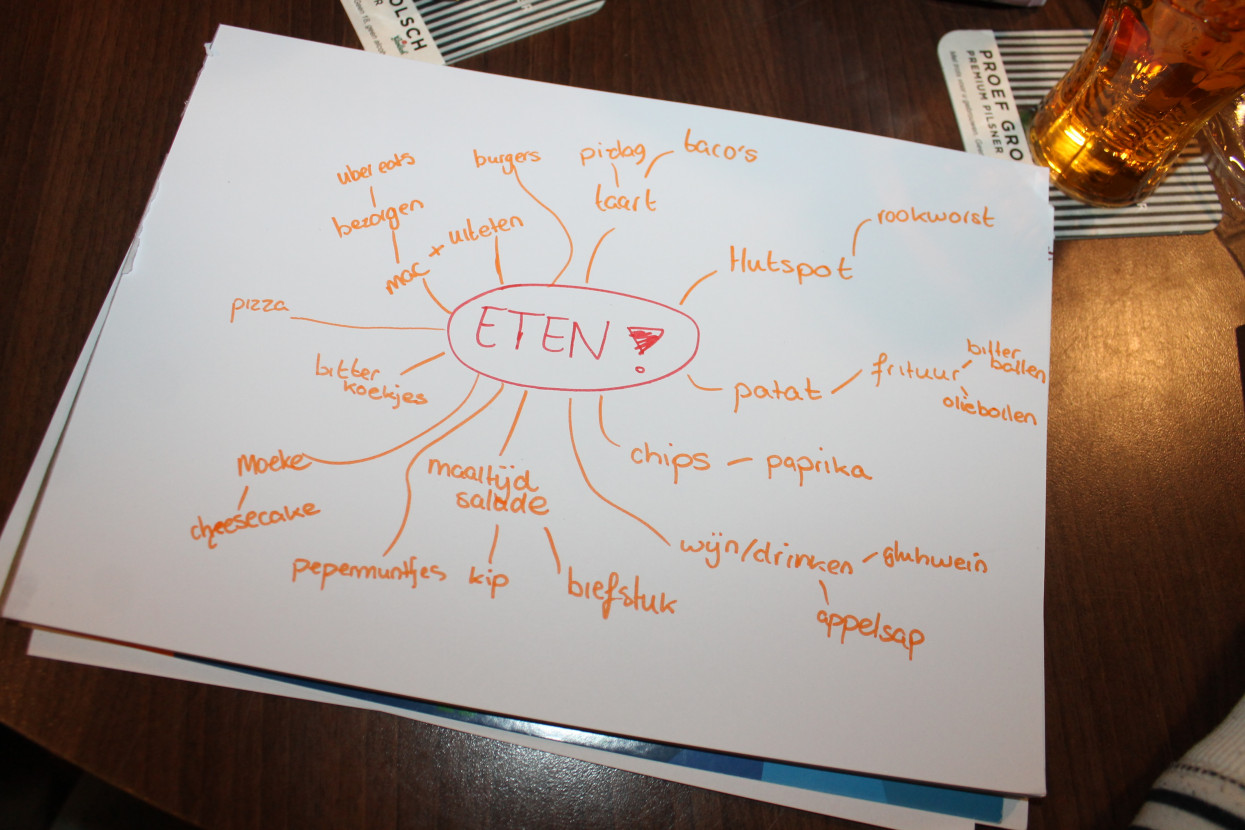 OLSCH
PROEF GRO
PREMIUM PILSNER
ETEN!
uber eats
bezorgen
mac + uiteten
burgers
taart
taco's
Hutspot
rookworst
patat
frituur
bitter
ballen
oliebollen
chips - paprika
wijn/drinken
gluhwein
appelsap
maaltijd
salade
kip
biefstuk
pepermuntjes
Moeke
cheesecake
bitter
koekjes
pizza